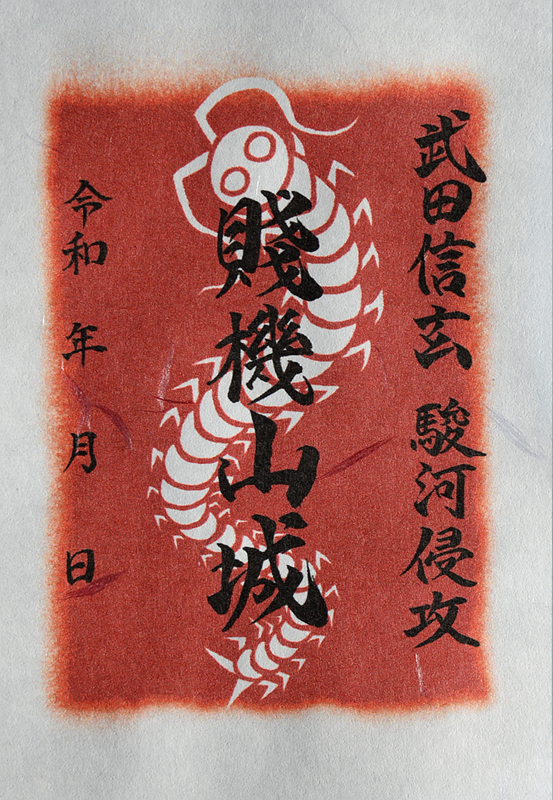 武田信玄 駿河侵攻
賤機山城
令和 年 月 日